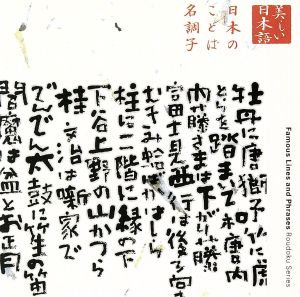 美しい
日本語
日本の
ことば
名調子
Famous Lines and Phrases Roudoku Series
牡丹に唐獅子竹に虎
とらを踏まいて和唐内
内藤さまは下がり藤
富士見西行は後ろ向
むきみ蛤ばかはしら
柱に二階に縁の下
下谷上野の山かつら
桂文治は噺家で
でんでん太鼓に笙の笛
閻魔は盆とお正月